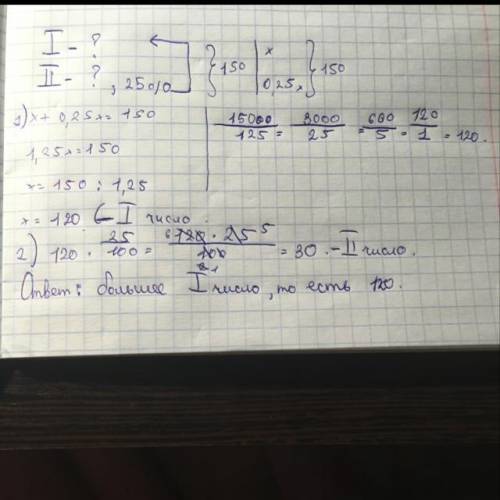 I - ?
II - ?, 25% } 150 | x 0,25x } 150
1) x + 0,25x = 150
1,25x = 150
x = 150 : 1,25
x = 120 ← I число.
15000/125 = 3000/25 = 600/5 = 120/1 = 120.
2) 120 · 25/100 = 120 · 25/100 = 30 - II число.
Ответ: большее I число, то есть 120.